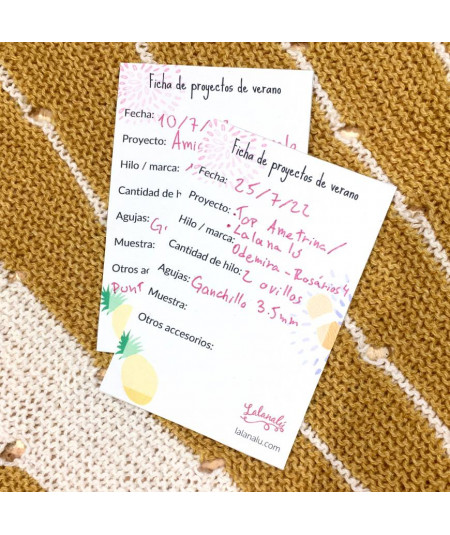 Ficha de proyectos de verano
Fecha: 10/7/
Proyecto:
Hilo / marca:
Cantidad de h
Agujas: G
Muestra:
Otros ac
Punt
Ficha de proyectos de verano
Fecha: 25/7/22
Proyecto: Top Ametrina/
Hilo / marca: Lalanalú
Odemira - Rosários 4
Cantidad de hilo: 2 ovillos
Agujas: Ganchillo 3.5mm
Muestra:
Otros accesorios:
Lalanalú
lalanalu.com